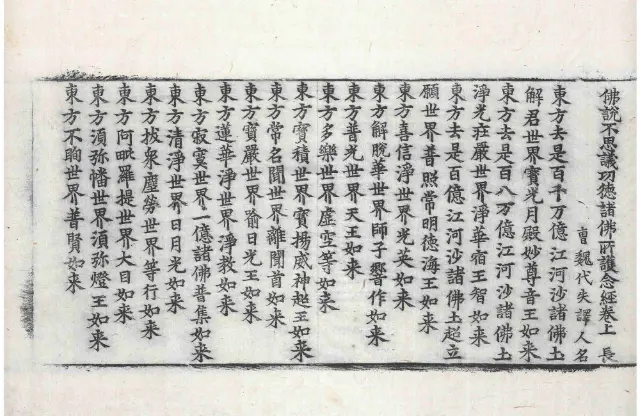 佛說不思議功德諸佛所護念經卷上 長
曹魏代失譯人名
東方去是百千万億江河沙諸佛土
解君世界寶光月殿妙尊音王如来
東方去是百八万億江河沙諸佛土
淨光莊嚴世界淨華宿王智如来
東方去是百億江河沙諸佛土超立
願世界普照常明德海王如来
東方喜信淨世界光英如来
東方解脫華世界師子響作如来
東方普光世界天王如来
東方多樂世界虛空等如来
東方寶積世界寶揚威神超王如来
東方常名聞世界離聞首如来
東方寶嚴世界喻日光王如来
東方蓮華淨世界淨教如来
東方寂寞世界一億諸佛普集如来
東方清淨世界日月光如来
東方拔衆塵勞世界等行如来
東方阿毗羅提世界大目如来
東方須弥幡世界須弥燈王如来
東方不眴世界普賢如来